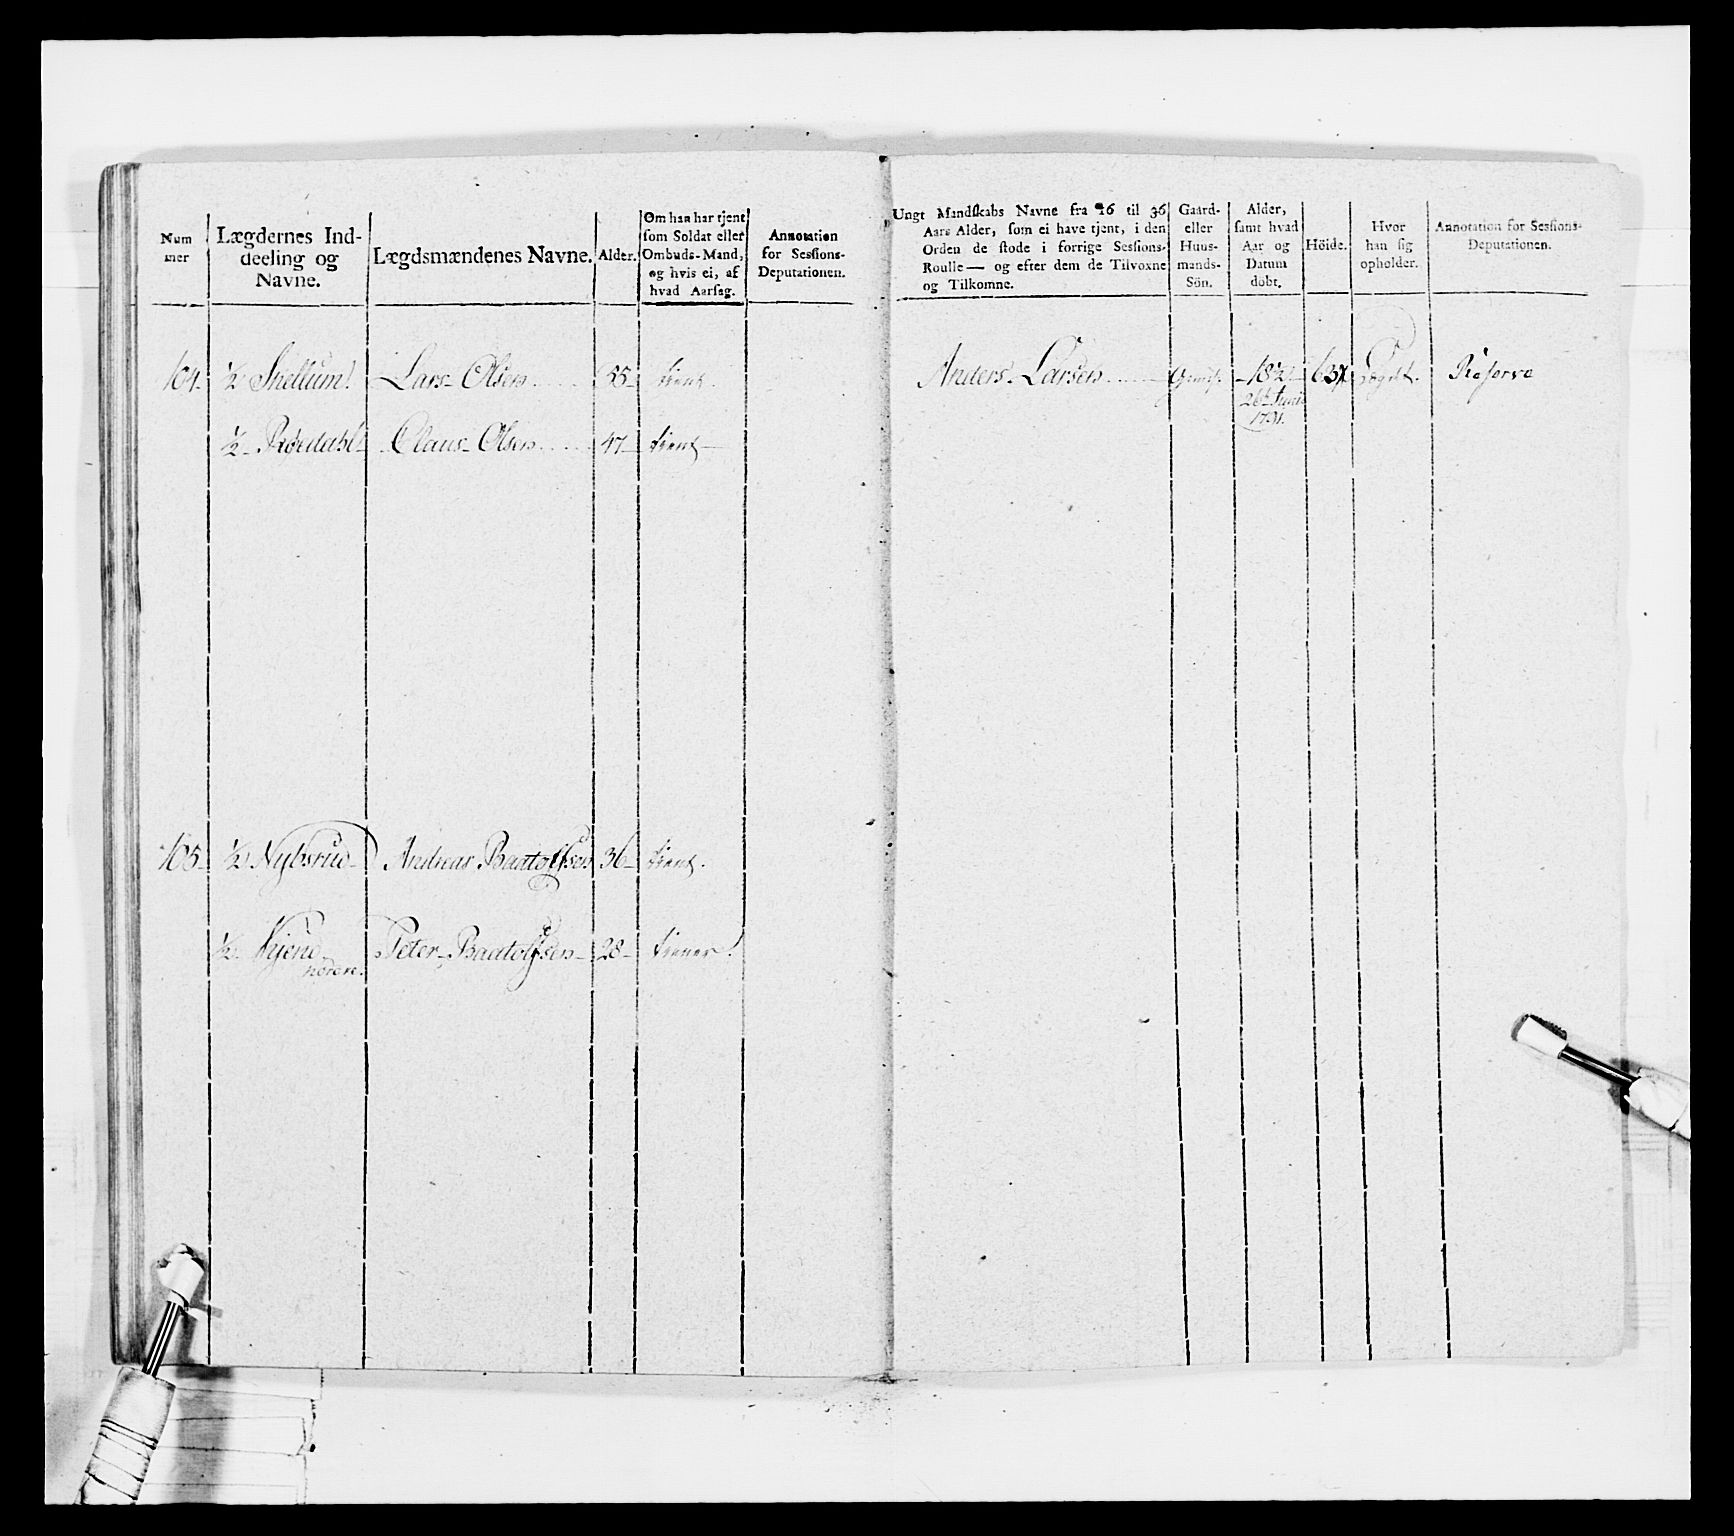 Num mer
Lægdernes Ind-
deeling og
Navne.
Lægdsmændenes Navne.
Alder.
Om han har tjent
som Soldat eller
Ombuds-Mand,
og hvis ei, af
hvad Aarsag.
Annotation
for Sessions-
Deputationen.
Ungt Mandskabs Navne fra 16 til 36
Aars Alder, som ei have tjent, i den
Orden de stode i forrige Sessions-
Roulle — og efter dem de Tilvoxne
og Tilkomne.
Gaard-
eller
Huus-
mands-
Sön.
Alder,
samt hvad
Aar og
Datum
döbt.
Höide.
Hvor
han sig
opholder.
Annotation for Sessions-
Deputationen.
104. ½ Snellum. Lars Olsen 55 tient Anders Larsen 18½ Lægdet. Reserve
26de Juni
1791.
½ Røedahl Claus Olsen 47 tient
105 ½ Nybsrud Andreas Baatolfsen 36 tient.
½ Kjend Peter Baatolfsen 28 tiener.
nordre.